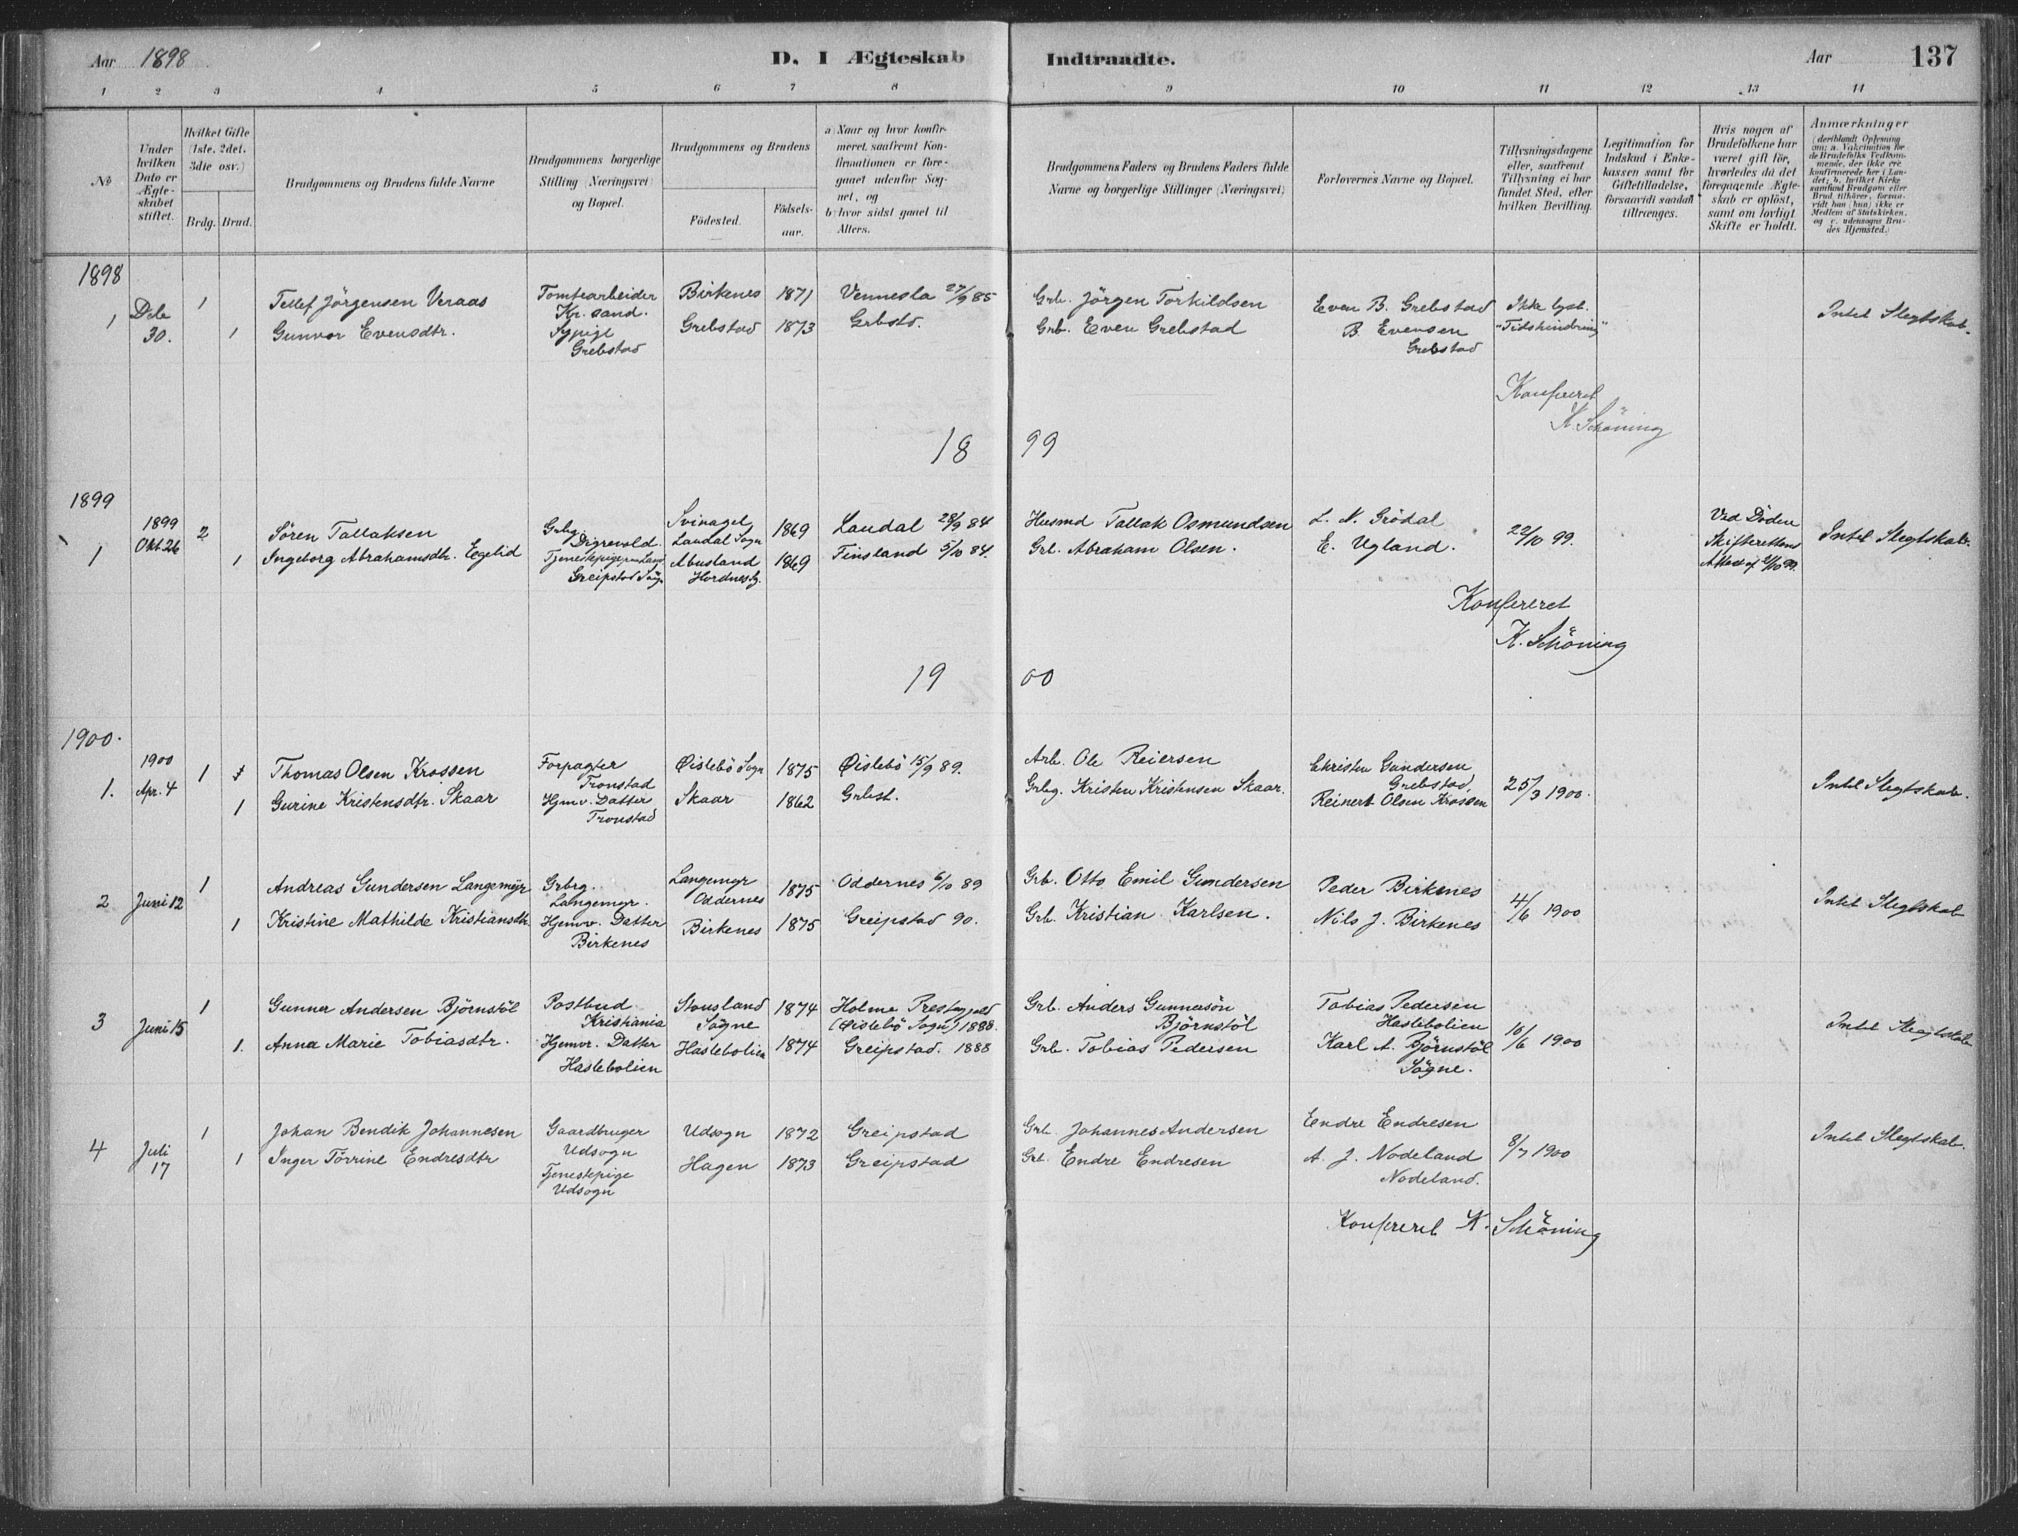 Aar 1898
D. I Ægteskab Indtraadte.
Aar
137
1 2 3 4 5 6 7 8 9 10 11 12 13 14
No
Under hvilken Dato er Ægteskabet stiftet.
Hvilket Gifte (1ste, 2det, 3die osv.)
Brdg. Brud.
Brudgommens og Brudens fulde Navne
Brudgommens borgerlige Stilling (Næringsvei) og Bopæl.
Brudgommens og Brudens
Födested.
Födsels-aar.
a) Naar og hvor konfirmeret, saafremt Konfirmationen er foregaaet udenfor Sognet, og
b) hvor sidst gaaet til Alters.
Brudgommens Faders og Brudens Faders fulde Navne og borgerlige Stillinger (Næringsvei)
Forlovernes Navne og Bopæl.
Tillysningsdagene eller, saafremt Tillysning ei har fundet Sted, efter hvilken Bevilling.
Legitimation for Indskud i Enkekassen samt for Giftetilladelse, forsaavidt saadan tiltrænges.
Hvis nogen af Brudefolkene har været gift för, hvorledes da det foregaaende Ægteskab er oplöst, samt om lovligt Skifte er holdt.
Anmærkninger (deriblandt Oplysning om: a. Vakcination for de Brudefolks Vedkommende, der ikke ere konfirmerede her i Landet; b. hvilket Kirkesamfund Brudgom eller Brud tilhører, forsaavidt han (hun) ikke er Medlem af Statskirken, og c. udensogns Brudes Hjemsted.)
1898
1 Dcbr 30. 1 Tellef Jörgensen Veraas Tomtearbeider Kr.sand. Birkenes 1871 Vennesla 27/9 85 Grb. Jörgen Torkildsen Even B. Grebstad Ikke lyst. Intet Slegtskab.
1 Gunvor Evensdtr. Sypige Grebstad Grebstad 1873 Grbstd. Grb. Even Grebstad B Evensen Grebstad "Tidshindring"
Konfereret
K. Schöning
1899
1899
1 1899 Okt 26 2 Sören Tallaksen Grbg. Digrevold. Svinagel Laudal Sogn 1869 Laudal 28/9 84 Husmd Tallak Osmundsen L. N. Grödal 22/10 99. Ved Döden Skifterettens Attest af /10 99. Intet Slegtskab.
1 Ingeborg Abrahamsdtr. Egelid Tjenestepige Greipstad Sogn Abusland 1869 Finsland 5/10 84. Grb. Abraham Olsen. E. Ugland.
Konfereret
K. Schöning
1900
1900.
1. 1900 Apr. 4 1 Thomas Olsen Krossen Forpagter Tronstad Øislebö Sogn 1875 Øislebö 15/9 89. Arb. Ole Reiersen Christen Gundersen Grebstad 25/3 1900. Intet Slegtskab.
1 Gurine Kristensdtr. Skaar Hjmv. Datter Tronstad Skaar 1862 Grbst. Grbg. Kristen Kristensen Skaar. Reinert Olsen Krossen
2 Juni 12 1 Andreas Gundersen Langemyr Grbrg. Langemyr. Langemyr Oddernes 1875 Oddernes 6/10 89 Grb. Otto Emil Gundersen Peder Birkenes 4/6 1900 Intet Slegtskab
1 Kristine Mathilde Kristiansdtr. Hjemv. Datter Birkenes Birkenes 1875 Greipstad 90. Grb. Kristian Karlsen. Nils J. Birkenes
3 Juni 15 1 Gunner Andersen Björnstöl Postbud Kristiania Stousland Sögne 1874 Holme Prestegjeld (Øislebö Sogn) 1888. Grb. Anders Gunnersön Björnstöl Tobias Pedersen Haslebolien 10/6 1900 Intet Slegtskab
1. Anna Marie Tobiasdtr. Hjemv. Datter Haslebolien Haslebolien 1874 Greipstad. 1888 Grb. Tobias Pedersen Karl A. Björnstöl Sögne.
4 Juli 17 1 Johan Bendik Johannesen Gaardbruger Udsogn Udsogn 1872 Greipstad Grb. Johannes Andersen Endre Endresen 8/7 1900 Intet Slegtskab.
1 Inger Törrine Endresdtr Tjenestepige Udsogn Hagen 1873 Greipstad Grb. Endre Endresen A. J. Nodeland Nodeland.
Konfereret K. Schöning